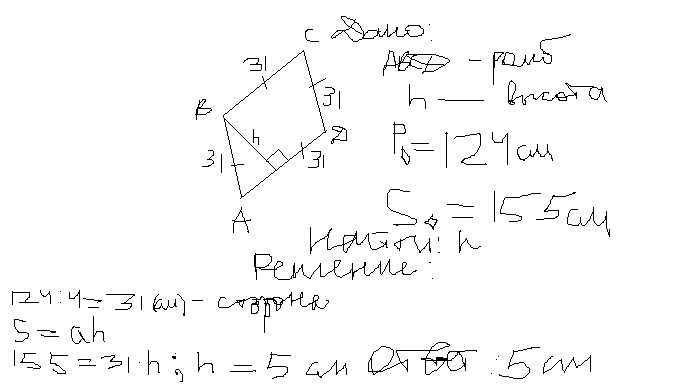 Дано:
ABCD - ромб
h — высота
P◊ = 124 см
S◊ = 155 см
Найти: h
Решение:
C
31
B
31
h
D
31
31
A
124:4=31(см) - сторона
S=ah
155=31·h; h=5 см Ответ: 5 см